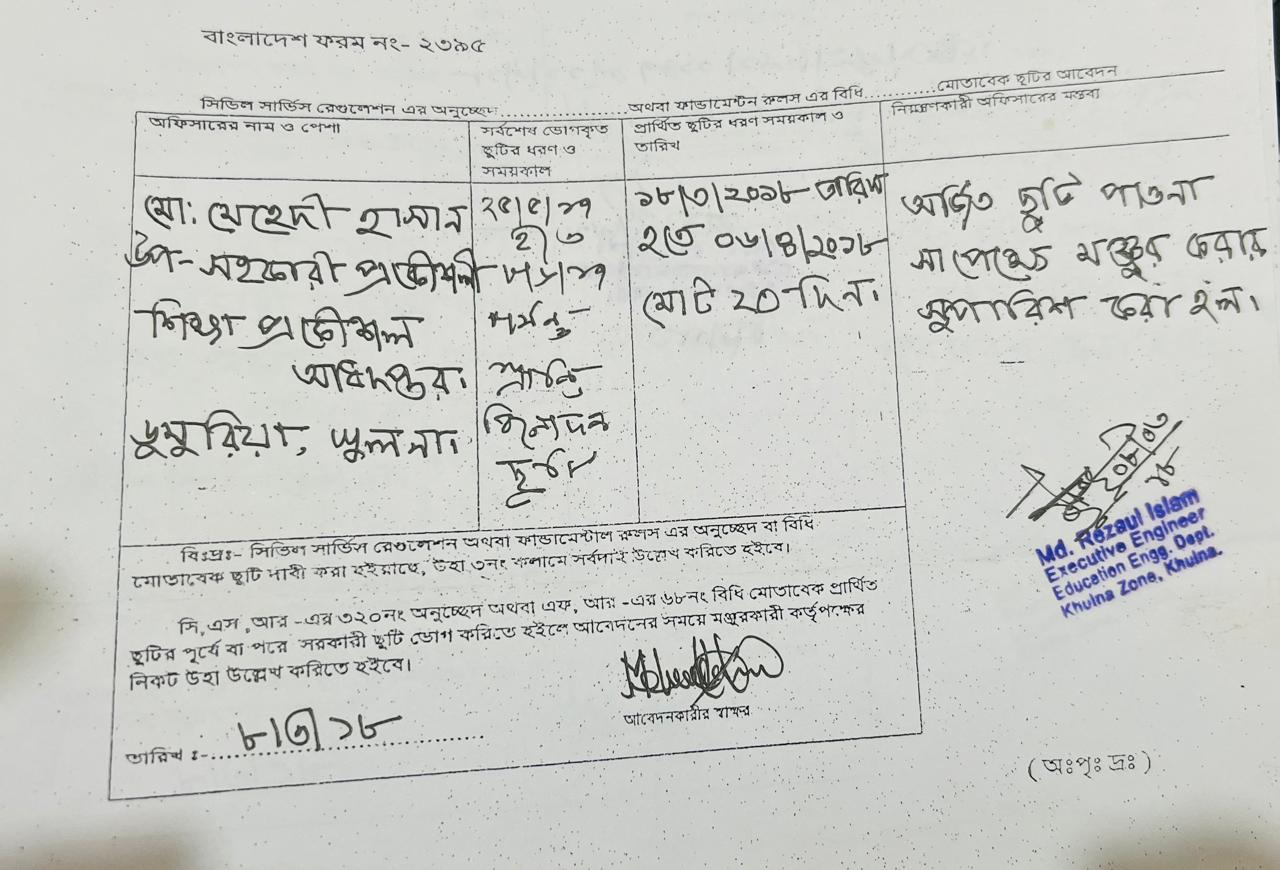 বাংলাদেশ ফরম নং- ২৩৯৫
সিভিল সার্ভিস রেগুলেশন এর অনুচ্ছেদ....................অথবা ফান্ডামেন্টন রুলস এর বিধি...........মোতাবেক ছুটির আবেদন
অফিসারের নাম ও পেশা
মো: মেহেদী হাসান
উপ-সহকারী প্রকৌশলী
শিক্ষা প্রকৌশল
অধিদপ্তর।
ডুমুরিয়া, খুলনা।
সর্বশেষ ভোগকৃত
ছুটির ধরণ ও
সময়কাল
২৫/৫/১৭
হতে
পর্যন্ত
শ্রান্তি
বিনোদন
ছুটি
প্রার্থিত ছুটির ধরণ সময়কাল ও
তারিখ
১৮/৩/২০১৮ তারিখ
হতে ০৬/৪/২০১৮
মোট ২০ দিন।
নিয়ন্ত্রণকারী অফিসারের মন্তব্য
অর্জিত ছুটি পাওনা
সাপেক্ষে মঞ্জুর করার
সুপারিশ করা হল।
Md. Rezaul Islam
Executive Engineer
Education Engg. Dept.
Khulna Zone, Khulna.
বিঃদ্রঃ- সিভিল সার্ভিস রেগুলেশন অথবা ফান্ডামেন্টাল রুলস এর অনুচ্ছেদ বা বিধি
মোতাবেক ছুটি দাবী করা হইয়াছে, উহা ৩নং কলামে সর্বদাই উল্লেখ করিতে হইবে।
সি,এস,আর -এর ৩২০নং অনুচ্ছেদ অথবা এফ, আর -এর ৬৮নং বিধি মোতাবেক প্রার্থিত
ছুটির পূর্বে বা পরে সরকারী ছুটি ভোগ করিতে হইলে আবেদনের সময়ে মঞ্জুরকারী কর্তৃপক্ষের
নিকট উহা উল্লেখ করিতে হইবে।
আবেদনকারীর স্বাক্ষর
তারিখ ঃ-.... ৮/৩/১৮
(অঃপৃঃ দ্রঃ)